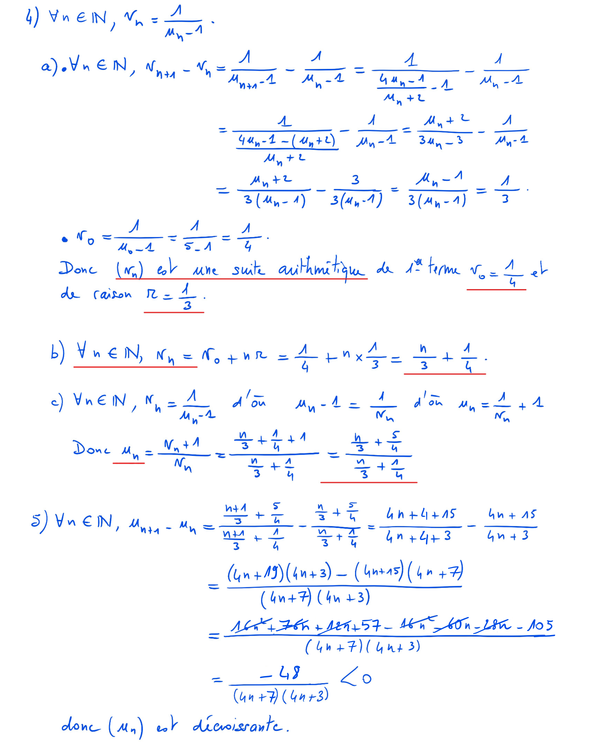 4) ∀n ∈ ℕ, vₙ = 1/(uₙ-1).
a) • ∀n ∈ ℕ, vₙ₊₁ - vₙ = 1/(uₙ₊₁-1) - 1/(uₙ-1) = 1/((4uₙ-1)/(uₙ+2) - 1) - 1/(uₙ-1)
= 1/((4uₙ-1-(uₙ+2))/(uₙ+2)) - 1/(uₙ-1) = (uₙ+2)/(3uₙ-3) - 1/(uₙ-1)
= (uₙ+2)/(3(uₙ-1)) - 3/(3(uₙ-1)) = (uₙ-1)/(3(uₙ-1)) = 1/3.
• v₀ = 1/(u₀-1) = 1/(5-1) = 1/4.
Donc (vₙ) est une suite arithmétique de 1er terme v₀ = 1/4 et
de raison r = 1/3.
b) ∀n ∈ ℕ, vₙ = v₀ + nr = 1/4 + n × 1/3 = n/3 + 1/4.
c) ∀n ∈ ℕ, vₙ = 1/(uₙ-1) d'où uₙ-1 = 1/vₙ d'où uₙ = 1/vₙ + 1
Donc uₙ = (vₙ+1)/vₙ = (n/3 + 1/4 + 1)/(n/3 + 1/4) = (n/3 + 5/4)/(n/3 + 1/4)
5) ∀n ∈ ℕ, uₙ₊₁ - uₙ = ((n+1)/3 + 5/4)/((n+1)/3 + 1/4) - (n/3 + 5/4)/(n/3 + 1/4) = (4n+4+15)/(4n+4+3) - (4n+15)/(4n+3)
= ((4n+19)(4n+3) - (4n+15)(4n+7))/((4n+7)(4n+3))
= (16n²+76n+12n+57-16n²-60n-28n-105)/((4n+7)(4n+3))
= -48/((4n+7)(4n+3)) < 0
donc (uₙ) est décroissante.